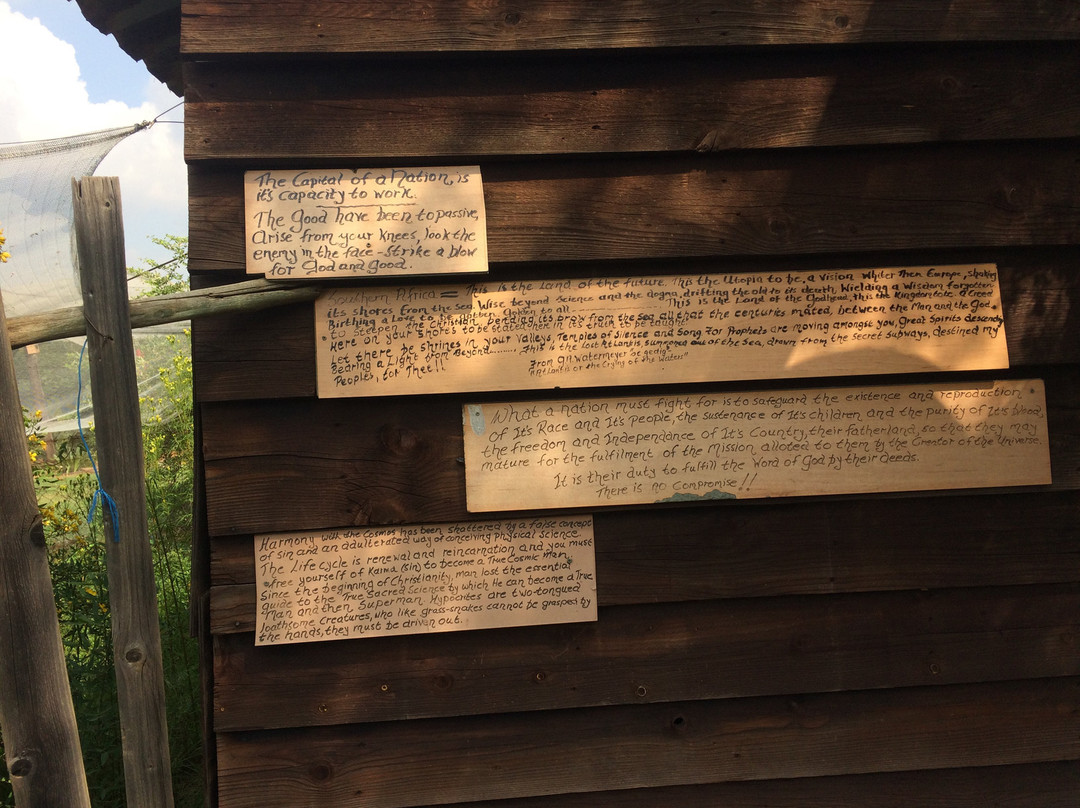 The Capital of a Nation, is
it's capacity to work.
The Good have been to passive,
Arise from your Knees, look the
enemy in the face - strike a blow
for God and good.
Southern Africa = This is the Land of the future. This the Utopia to be, a vision whiter then Europe, shaking
its shores from the sea. Wise beyond Science and the dogma, drifting the old to its death. Wielding a Wisdom forgotten
Birthing a love to be Mother. Open to all This is the Land of the Godhead, this the Kingdom a Creed
to steepen the Christian, bending its prow from the sea all that the centuries mated, between the Man and the God.
Here on your Shores to be stated, here in its truth to be taught.
Let there be Shrines in your Valleys, Temples of Silence and Song For Prophets are moving amongst you, Great Spirits descend
Bearing a Light from Beyond........ This is the lost Atlantis, summoned out of the Sea, drawn from the Secret Subways, destined my
Peoples, for Thee!!
From Watermeyer
"Atlantis or the Crying of the Waters"
What a nation must fight for is to safeguard the existence and reproduction
of It's Race and It's People, the sustenance of It's children and the purity of It's blood,
the freedom and Independance of It's Country, their fatherland, so that they may
mature for the fulfilment of the Mission alloted to them by the Creator of the Universe.
It is their duty to fulfill the Word of God by their deeds.
There is no compromise!!
Harmony with the Cosmos has been shattered by a false concept
of Sin and an adulterated way of conceiving Physical Science
The Life cycle is renewal and reincarnation and you must
free yourself of Karma (Sin) to become a True Cosmic Man.
Since the beginning of Christianity, man lost the essential
guide to the True Sacred Science by which He can become a True
Man and then, Superman. Hypocrites are two-tongued
loathsome creatures, who like grass-snakes cannot be grasped by
the hands, they must be driven out.